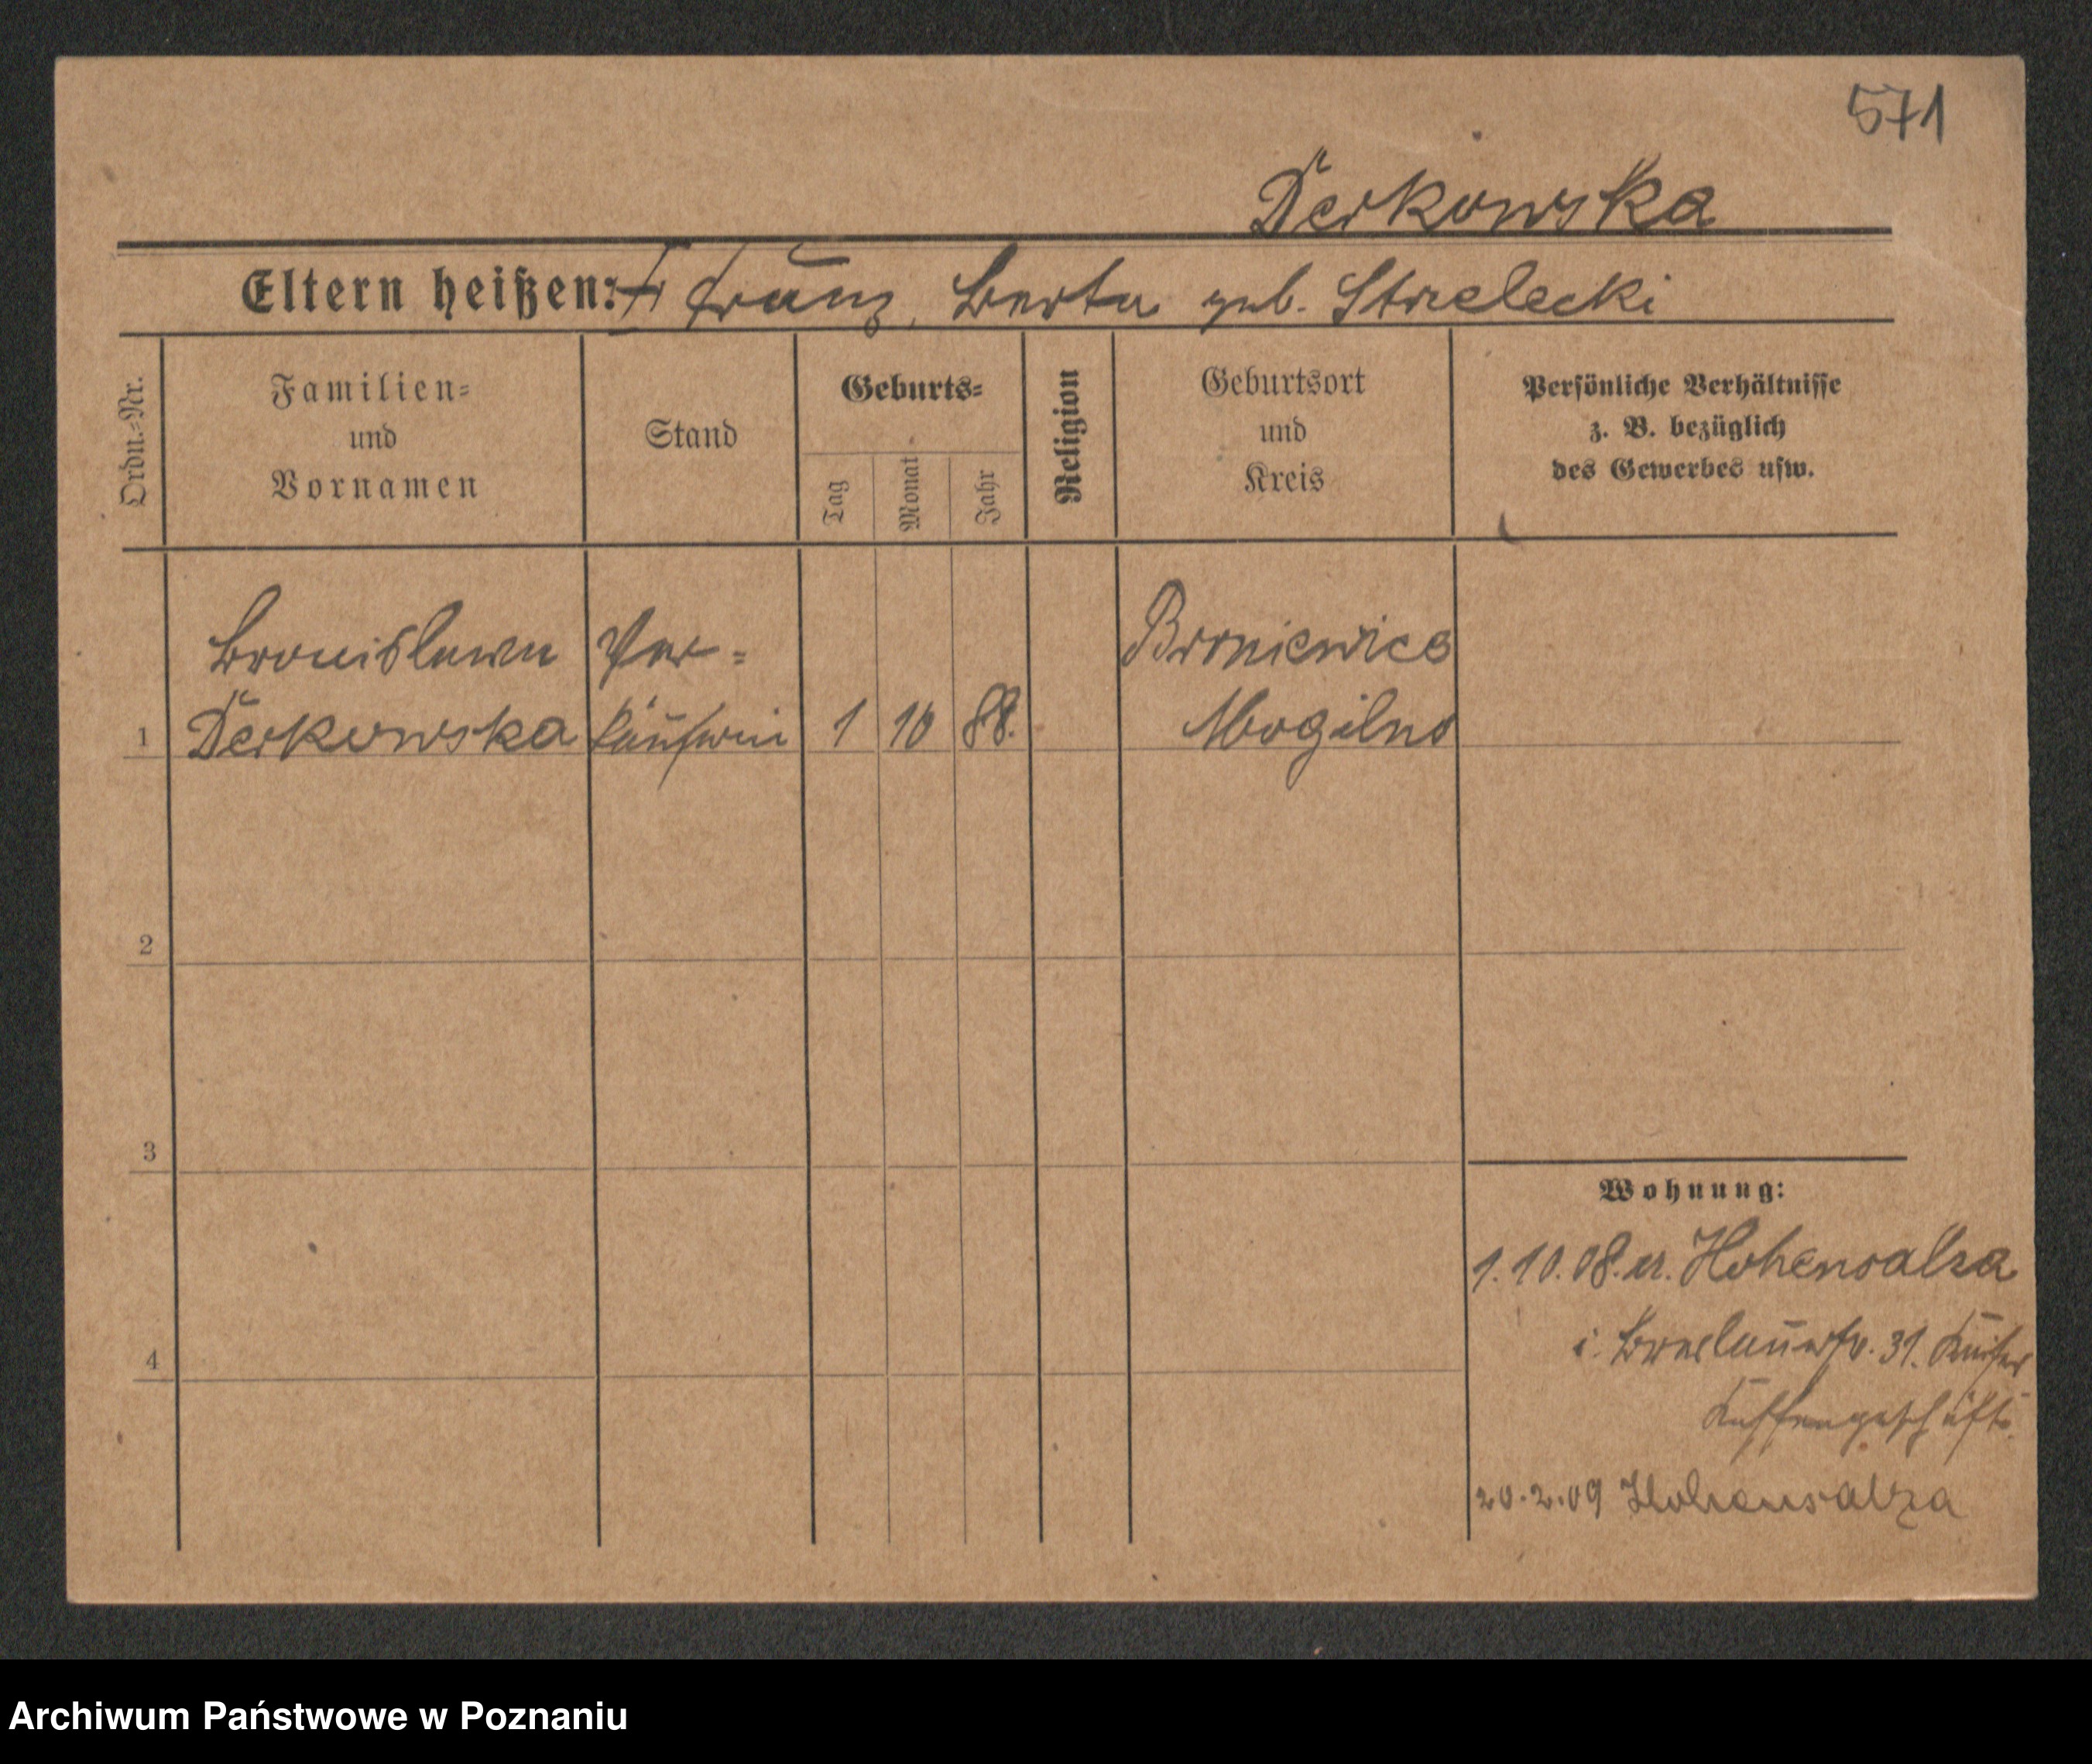 571
Derkowska
Eltern heißen: Franz, Berta geb. Strelecki
Ordn.-Nr.
Familien-
und
Vornamen
Stand
Geburts-
Tag
Monat
Jahr
Religion
Geburtsort
und
Kreis
Persönliche Verhältnisse
z. B. bezüglich
des Gewerbes usw.
Bronislawa Ver-
Broniewice
1 Derkowska käuferin 1 10 88.
Mogilno
2
3
4
Wohnung:
1.10.08. Hohensalza
i. Breslauerstr. 31. Kaisers
Kaffeegeschäft.
20.2.09 Hohensalza
Archiwum Państwowe w Poznaniu